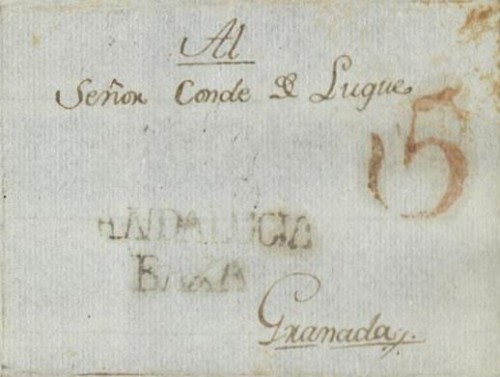 Al
Señor Conde de Luque
15
ANDALUCIA
BAXA
Granada.